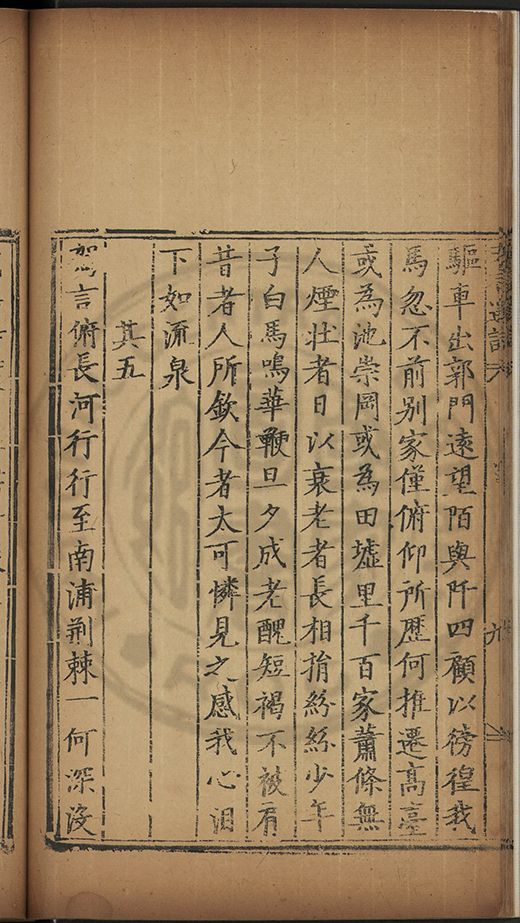 驅車出郭門遠望陌與阡四顧以徬徨我
馬忽不前別家僅俯仰所歷何推遷高臺
或為池崇岡或為田墟里千百家蕭條無
人煙壯者日以衰老者長相捐紛紛少年
子白馬鳴華鞭旦夕成老醜短褐不被肩
昔者人所欽今者太可憐見之感我心淚
下如流泉
其五
駕言俯長河行行至南浦荆棘一何深沒